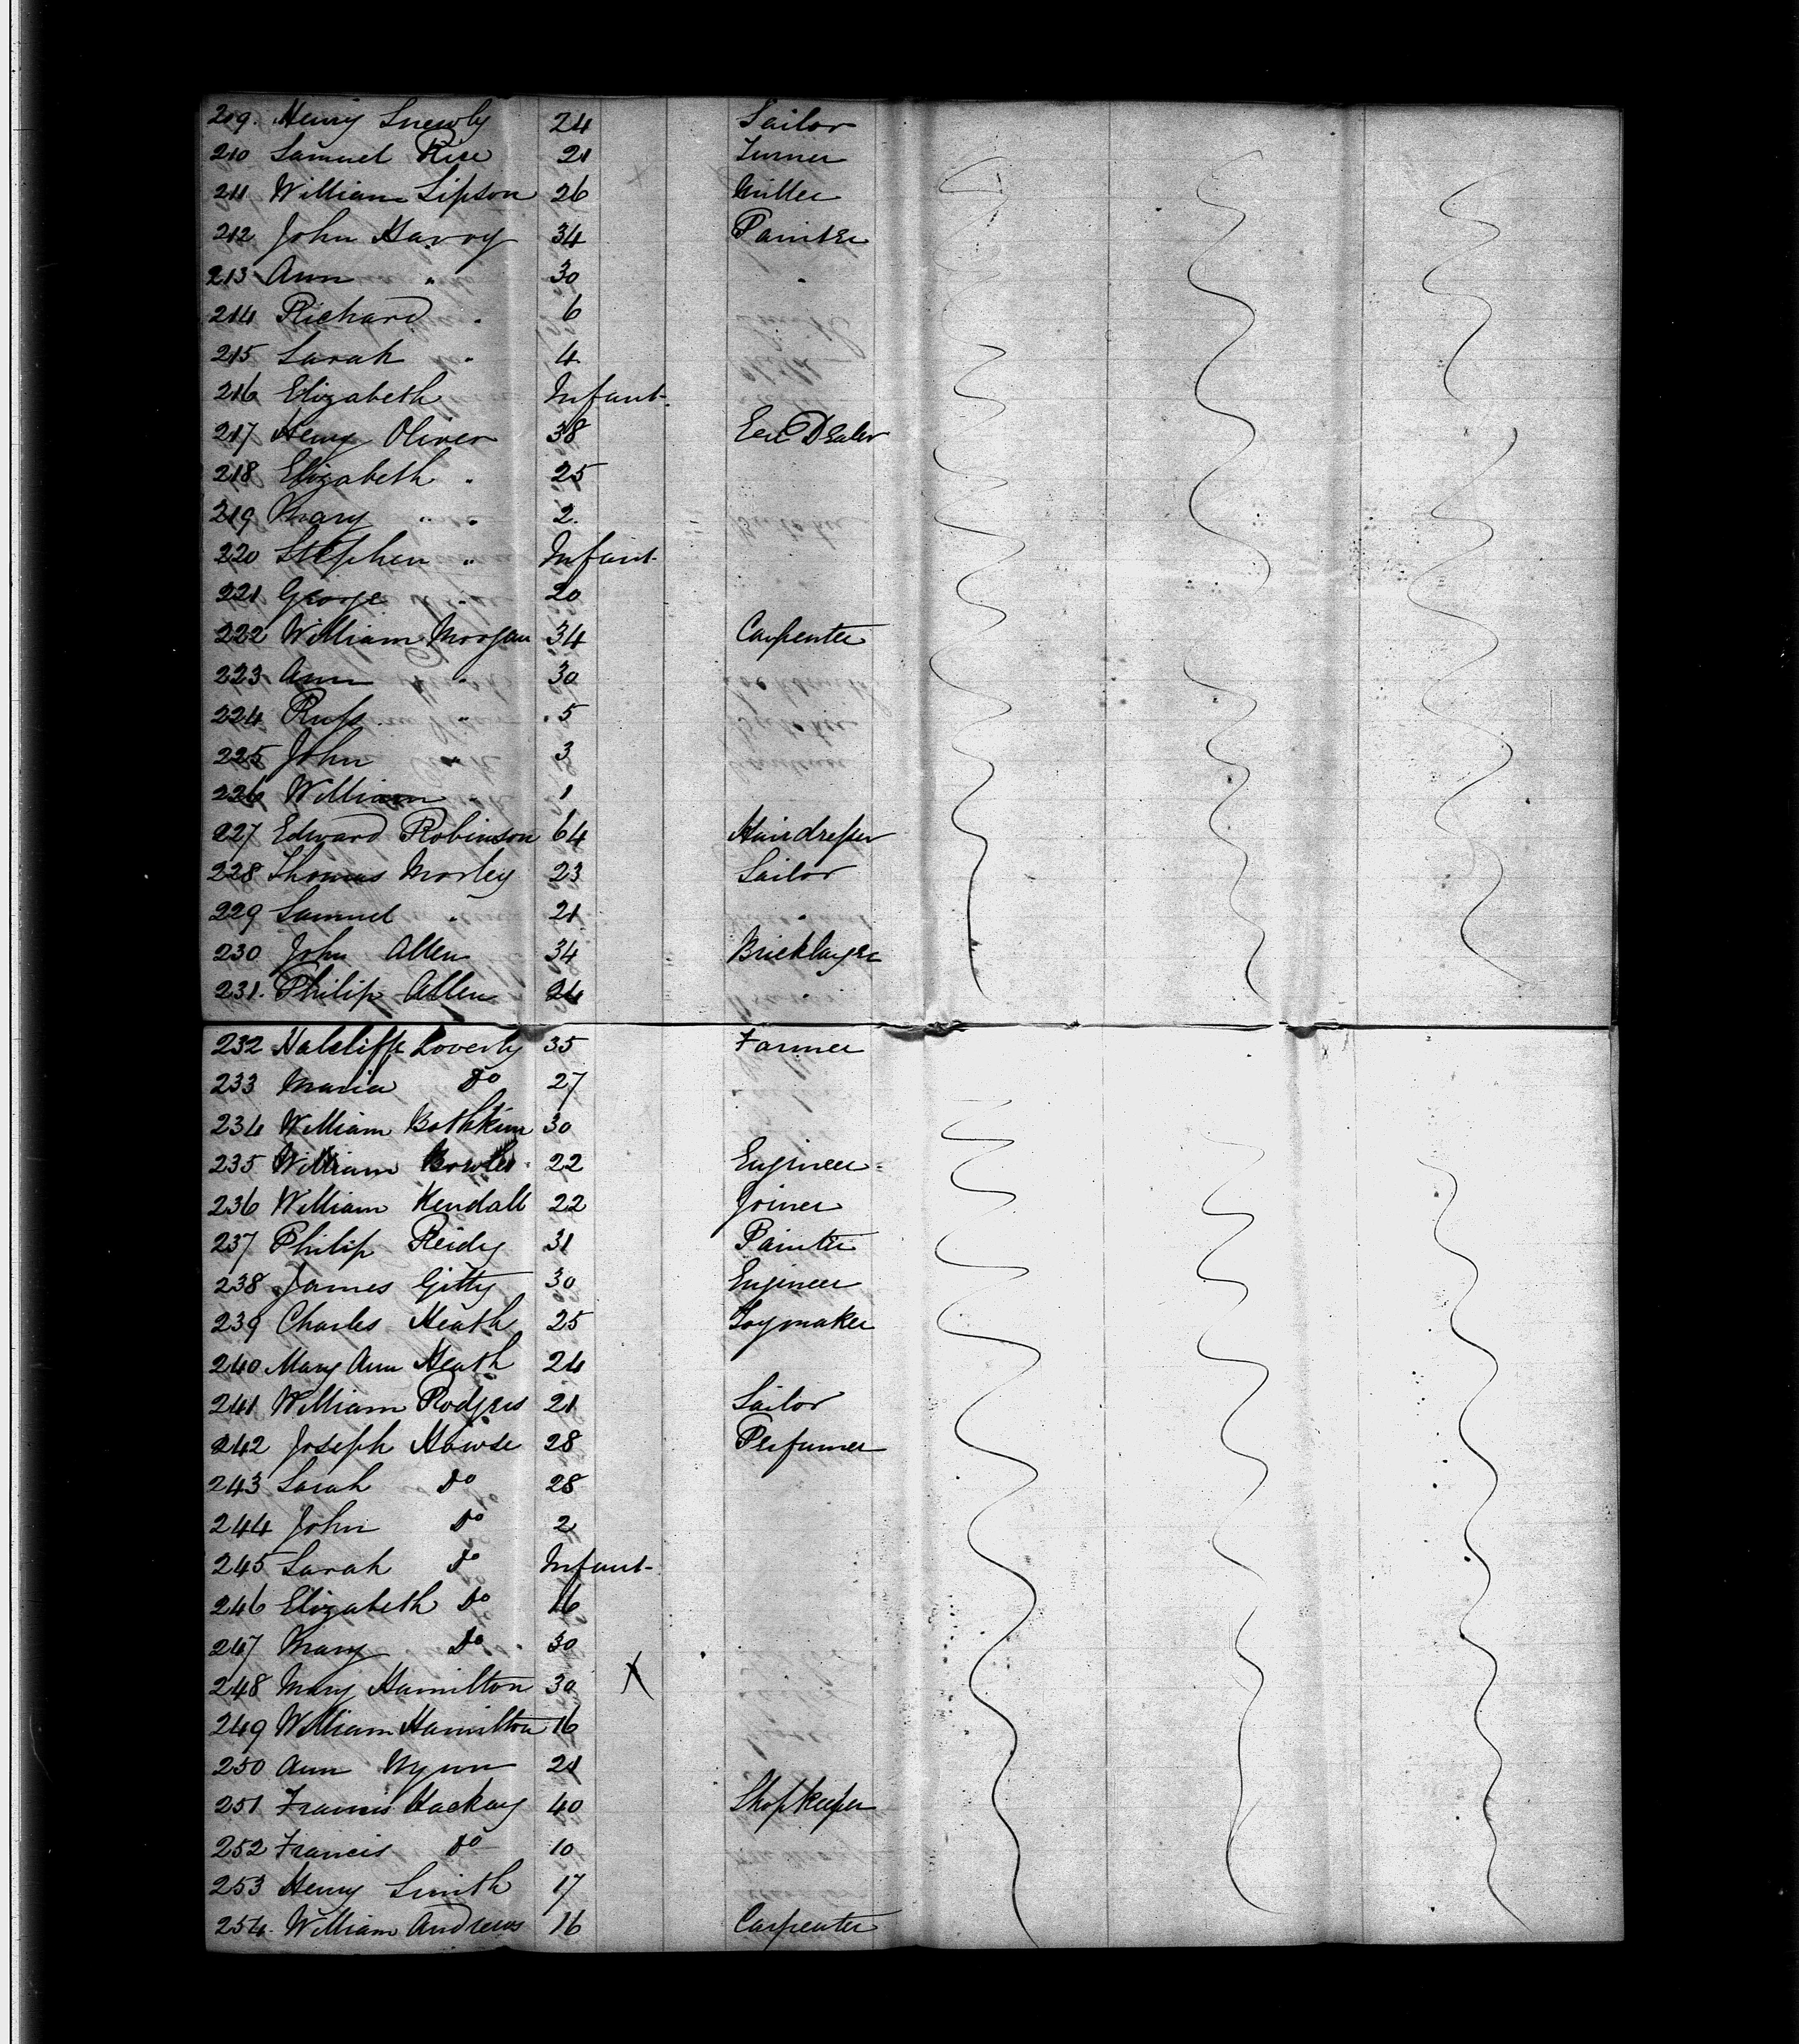 209. Henry Snewly 24 Tailor
210 Samuel Rice 21 Turner
211 William Lipson 26 Miller
212 John Harvy 34 Painter
213 Ann " 30 "
214 Richard " 6
215 Sarah " 4
216 Elizabeth Infant
217 Henry Oliver 38 Dealer
218 Elizabeth " 25
219 Mary " " 2
220 Stephen " Infant
221 George " 20
222 William Morgan 34 Carpenter
223 Ann " 30
224 " 5
225 John " 3
226 William " 1
227 Edward Robinson 64 Hairdresser
228 Thomas Morley 23 Sailor
229 Samuel " 21 "
230 John Allen 34 Bricklayer
231. Philip Allen 24 "
232 Loverly 35 Farmer
233 Maria Do 27
234 William 30
235 William Bowles 22 Engineer
236 William Kendall 22 Joiner
237 Philip Reidy 31 Painter
238 James Gitty 30 Engineer
239 Charles Heath 25 Toymaker
240 Mary Ann Heath 24
241 William Rodgers 21 Sailor
242 Joseph Howse 28 Perfumer
243 Sarah Do 28
244 John Do 2
245 Sarah Do Infant
246 Elizabeth Do 16
247 Mary Do 30
248 Mary Hamilton 30 X
249 William Hamilton 16
250 Ann Wynn 21
251 Francis Hackey 40 Shopkeeper
252 Francis Do 10
253 Henry Smith 17
254. William Andrews 16 Carpenter